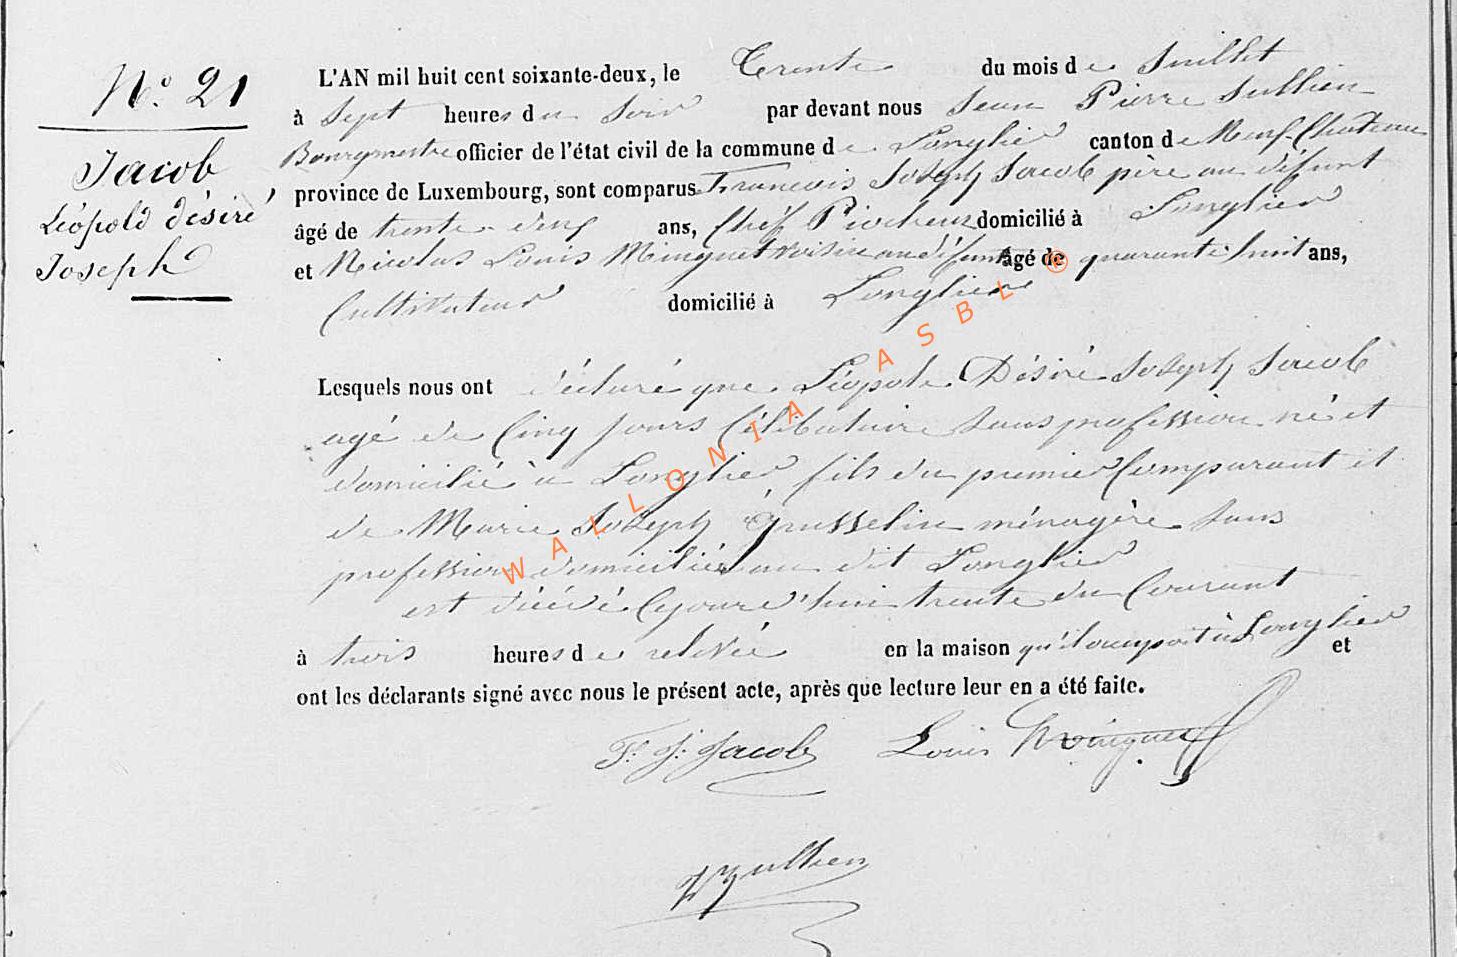 N.º 21
Jacob
Léopold désiré
Joseph
L'AN mil huit cent soixante-deux, le Trente du mois de Juillet
à Sept heures du Soir par devant nous Jean Pierre Jullien
Bourgmestre officier de l'état civil de la commune de Longlier canton de Neuf-Château
province de Luxembourg, sont comparus Francois Joseph Jacob père au défunt
âgé de trente-deux ans, Chef Piocheur domicilié à Longlier
et Nicolas Louis Minguet voisin au défunt âgé de quarante huit ans,
Cultivateur domicilié à Longlier
Lesquels nous ont déclaré que Léopold Désiré Joseph Jacob
agé de Cinq jours Célibataire Sans profession né et
domicilié à Longlier fils du premier Comparant et
de Marie Joseph ménagère Sans
profession domiciliés au dit Longlier
est décédé Cejourd'hui trente du Courant
à trois heures de relevée en la maison qu'il occupoit à Longlier et
ont les déclarants signé avec nous le présent acte, après que lecture leur en a été faite.
F. J. Jacob Louis Minguet
Jullien
WALLONIA ASBL ®